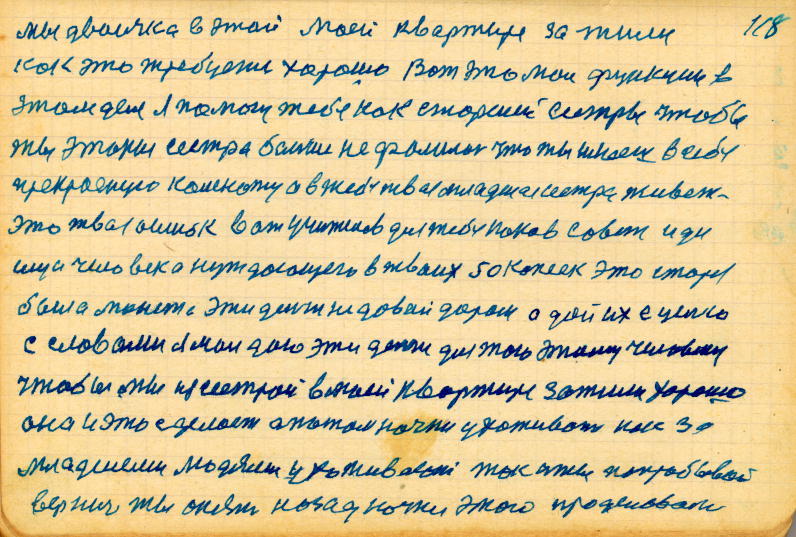 мы двоичка в этой моей квартире зажили 118
как это требуем хорошо Вот это мои функции в
этом деле Я помогу тебе как старшей сестры чтобы
ты этаны сестра больше не что ты имеех в себе
прекрасную комнату а в тебе твая младшая сестра живет
это твая Вот учителев для тебя таков совет иди
ищи человека нуждающего в твоих 50 копеек это стара
была монета Эти деньги не довай даром а дай их с целю
с словами Я мои даю эти денги для того этому человеку
чтобы мы из сестрой в твоей квартире зажили хорошо
она и это сделает а потом начни ухаживать как за
младшеми людями ухаживают так и ты попробывай
вернись ты опять назад начни этого проделовать